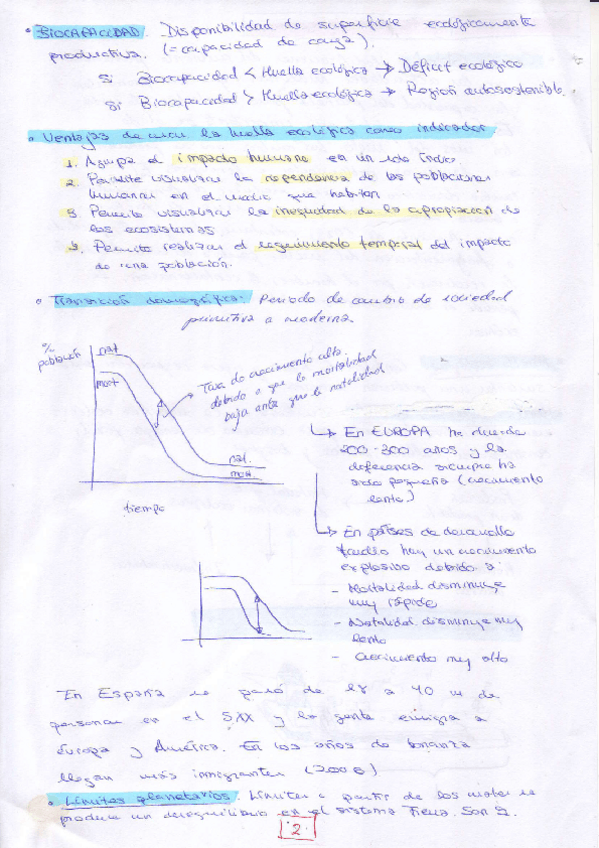 • BIOCAPACIDAD. Disponibilidad de superficie ecológicamente
productiva. (= capacidad de carga).
Si Biocapacidad < Huella ecológica → Déficit ecológico
Si Biocapacidad > Huella ecológica → Región autosostenible.
• Ventajas de la huella ecológica como indicador
1. Agrupa el impacto humano en un solo índice.
2. Permite visualizar la dependencia de las poblaciones
humanas en el medio que habitan
3. Permite visualizar la inequidad de la apropiación de
los ecosistemas
4. Permite realizar el seguimiento temporal del impacto
de una población.
• Transición demográfica: Periodo de cambio de sociedad
primitiva a moderna.
% población
nat
mort
Tasa de crecimiento alta
debido a que la mortalidad
baja antes que la natalidad
nat.
mort
tiempo
↳ En EUROPA ha durado
200-300 años y la
diferencia siempre ha
sido pequeña (crecimiento
lento)
↳ En países de desarrollo
tardío hay un crecimiento
explosivo debido a:
- Mortalidad disminuye
muy rápido
- Natalidad disminuye muy
lento
- Crecimiento muy alto
En España se pasó de 18 a 40 m de
personas en el SXX y la gente emigra a
Europa y América. En los años de bonanza
llegan más inmigrantes (2008)
• Límites planetarios. Límites a partir de los cuales se
produce un desequilibrio en el sistema Tierra. Son 9.
2